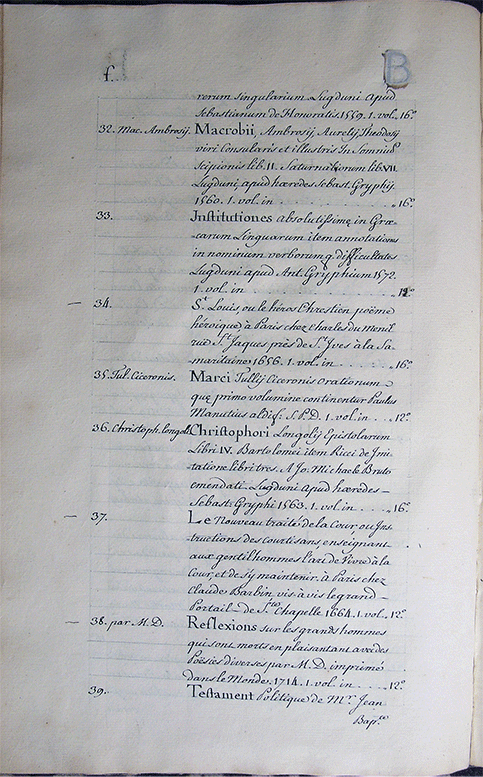 f. B
rerum singularium Lugduni apud
Sebastianum de Honoratis 1559. 1. vol. 16.°
32. Mac. Ambrosij. Macrobii, Ambrosij Aurelij Theodosij
viri Consularis et illustris In Somniū
Scipionis lib. II. Saturnalionem lib. VII.
Lugduni, apud hæredes Sebast. Gryphij.
1560. 1. vol. in . . . . . 16.°
33. Institutiones absolutissimę in Græ-
carum Linguarum item annotationes
in nominum verborumq. difficultates
Lugduni apud Ant. Gryphium 1572.
1. vol. in . . . . . 12.°
— 34. S.t Louis, ou le héros Chrestien poëme
héroique à Paris chez Charles du menil
rue S.t Jaques près de S.t Yves à la Sa-
maritaine 1656. 1. vol. in . . . 16.°
35. Tul. Ciceronis. Marci Tullij Ciceronis orationum
quę primo volumine continentur Paulus
Manutius aldi f. S. P. D. 1. vol. in . . . 12.°
36. Christoph. longoli Christophori Longolij Epistolarum
Libri IV. Bartolomei item Ricci de Imi-
tatione libri tres. A Jo. Michaele Bruto
emendati. Lugduni apud hæredes
Sebast. Gryphi 1563. 1. vol. in . . . 16.°
— 37. Le nouveau traité de la Cour ou Ins-
tructions des courtisans, enseignant
aux gentilhommes l'art de Vivre à la
Cour, et de s'y maintenir. à Paris chez
Claude Barbin vis à vis le grand
Portail de S.te Chapelle 1664. 1. vol. 12.°
— 38. par M. D. Reflexions sur les grands hommes
qui sont morts en plaisantant avec des
Poësies diverses par M. D. imprimé
dans le Monde. 1714. 1. vol. in . . . . 12.°
39. Testament Politique de M.r Jean
Bap.te